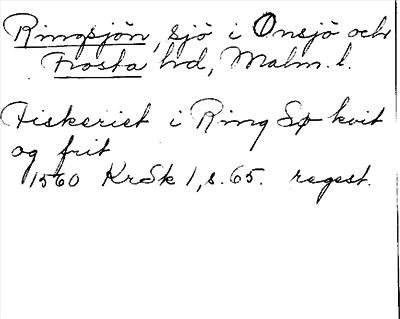 Ringsjön, sjö i Onsjö och
Frosta hd, Malm. l.
Fiskeriet i Ring Sø kvit
og frit
1560 KrSk 1, s. 65. regest.